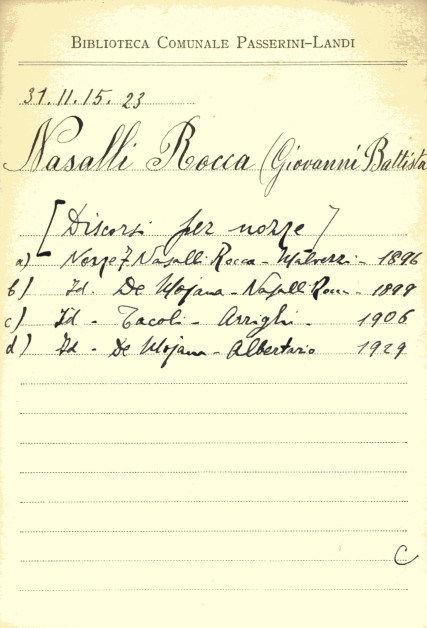 BIBLIOTECA COMUNALE PASSERINI-LANDI
31.11.15.23
Nasalli Rocca (Giovanni Battista
[Discorsi per nozze]
a) Nozze Nasalli Rocca - Malvezzi - 1896
b) Id. De Mojana - Nasalli Rocca - 1899
c) Id - Tacoli - Arrighi - 1906
d) Id - De Mojana - Albertario 1929
C